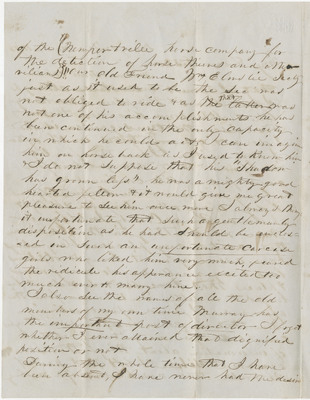 of the (Murportville horse company for
the detection of horse thieves and other
villains)" Our old Friend Wm Elmslie Sec'y
just as it used to be. The Sec. was
not obliged to ride & as the latter was
not one of his accomplishments he has
been continued in the only capacity
in which he could act. I can imagine
him on horse back as I used to know him
I do not suppose that his "Shadow
has grown less" he was a mighty good
hearted fellow & it would give me great
pleasure to see him once more. I always thought
it unfortunate that such a gentlemanly
disposition as he had should be encased
in such an unfortunate carcase
girls who liked him very much, feared
the ridicule his appearance excited too
much ever to marry him.
I also see the names of all the old
members of my own time Murray has
the important post of director I forget
whether I ever attained that dignified
position or not
During the whole time that I have
been absent, I have never had the desire